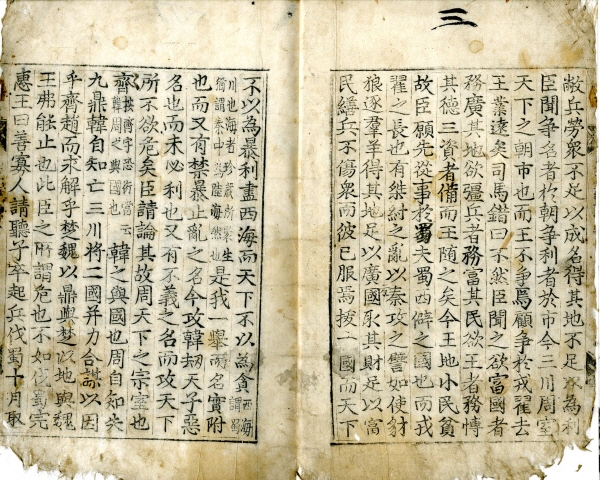 三
敝兵勞衆不足以成名得其地不足以為利
臣聞爭名者於朝爭利者於市今三川周室
天下之朝市也而王不爭焉顧爭於戎翟去
王業遠矣司馬錯曰不然臣聞之欲富國者
務廣其地欲彊兵者務富其民欲王者務博
其德三資者備而王隨之矣今王地小民貧
故臣願先從事於蜀夫蜀西僻之國也而戎
翟之長也有桀紂之亂以秦攻之譬如使豺
狼逐羣羊得其地足以廣國取其財足以富
民繕兵不傷衆而彼已服焉拔一國而天下
不以為暴利盡西海而天下不以為貪西海謂蜀
川也海者珍藏所聚生猶謂秦中為陸海然也是我一舉而名實附
也而又有禁暴止亂之名今攻韓劫天子惡
名也而未必利也又有不義之名而攻天下
所不欲危矣臣請論其故周天下之宗室也
齊按齊字恐衍當云韓周之與國也韓之與國也周自知失
九鼎韓自知亡三川將二國并力合謀以因
乎齊趙而求解乎楚魏以鼎與楚以地與魏
王弗能止也此臣之所謂危也不如伐蜀完
惠王曰善寡人請聽子卒起兵伐蜀十月取